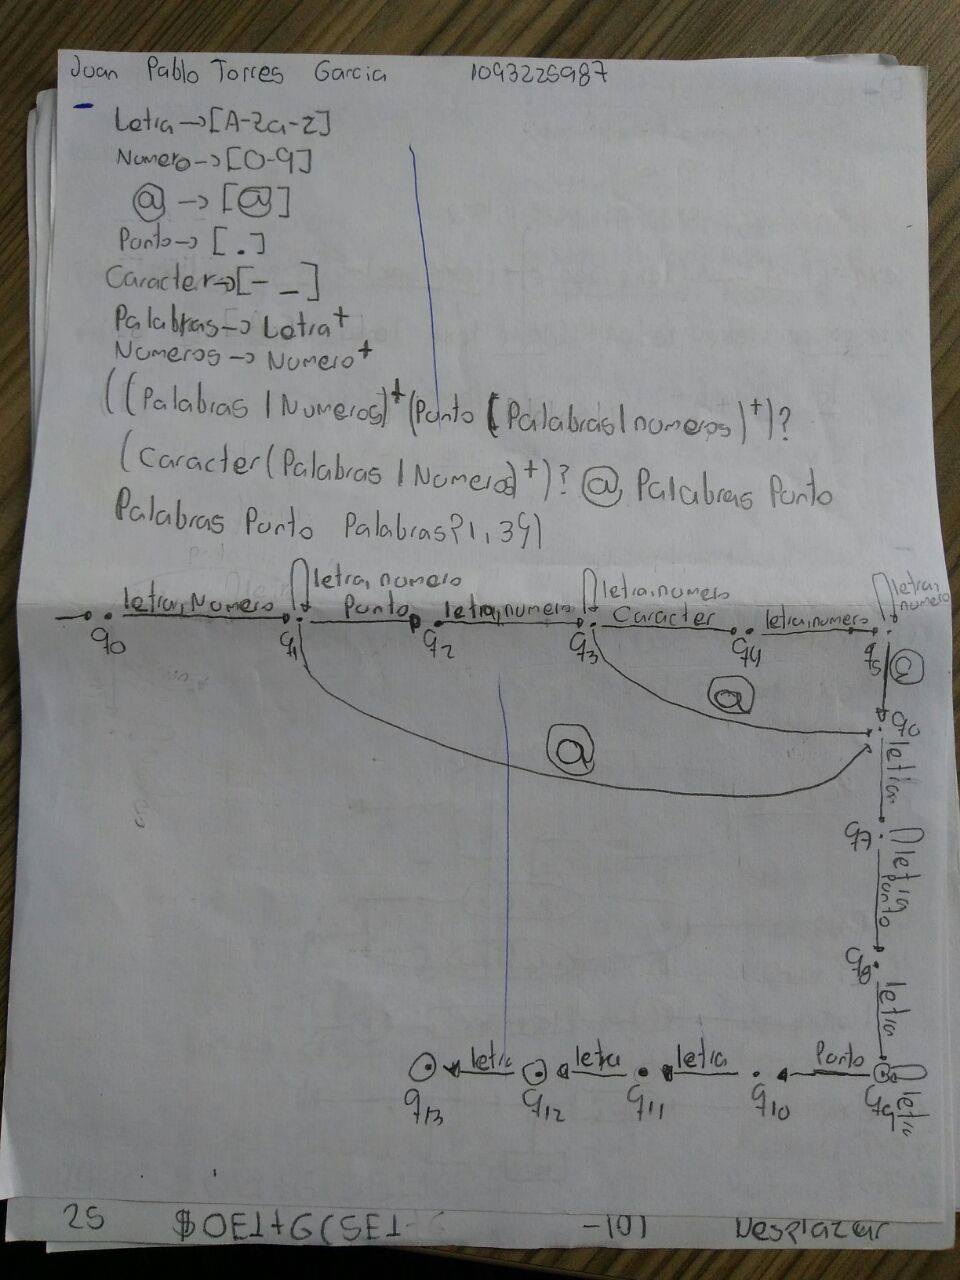 Juan Pablo Torres Garcia 1093225987
Letra→[A-Za-z]
Numero→[0-9]
@ → [@]
Punto→[.]
Caracter→[- _]
Palabras→ Letra+
Numeros → Numero+
((Palabras | Numeros)+(Punto (Palabras|numeros)+)?
(Caracter(Palabras | Numeros)+)? @ Palabras Punto
Palabras Punto Palabras{1,3})
letra, numero letra, numero letra, numero
letra, Numero Punto letra, numero Caracter letra, numero
q0 q1 q2 q3 q4 q5
@
@
@
q6
letra
q7 letra
Punto
q8
letra
letra letra letra Punto
q13 q12 q11 q10 q9 letra
25 $0E1+G(5E1- -(0) Desplazar